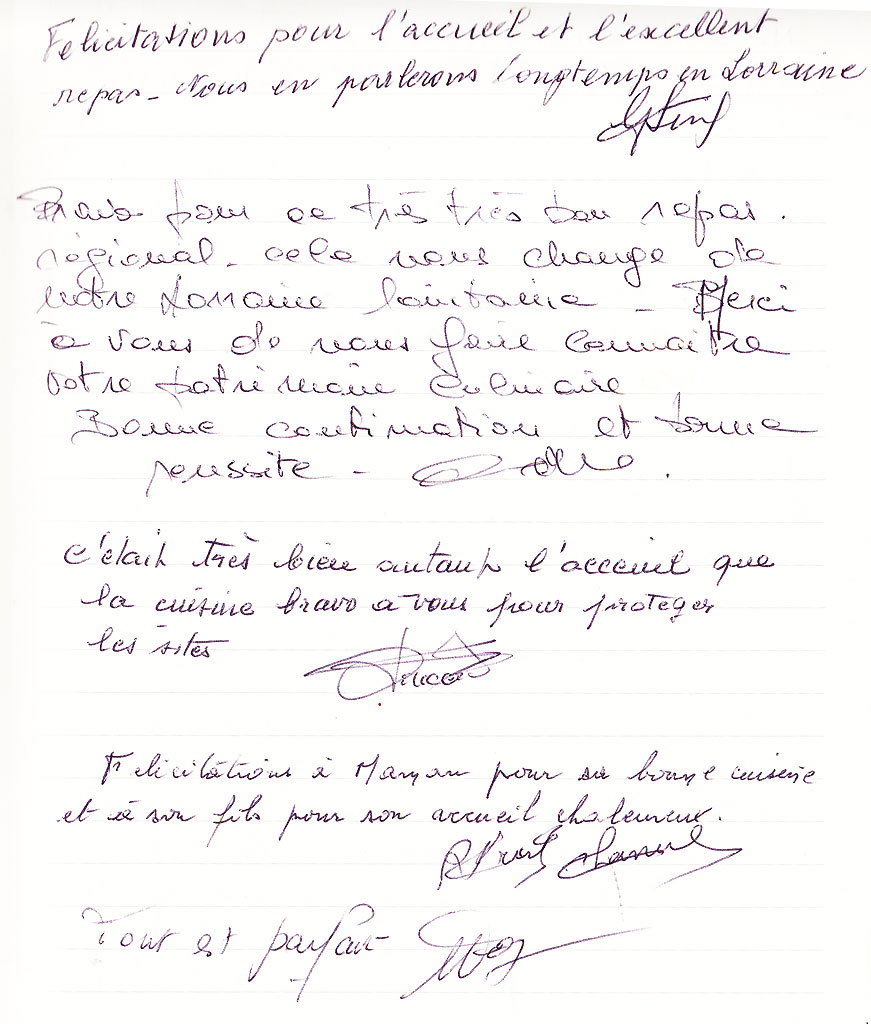 Felicitations pour l'accueil et l'excellent
repas - Nous en parlerons longtemps en Lorraine
Bravo pour ce très très bon repas.
régional - cela nous change de
notre Lorraine lointaine - Merci
à vous de nous faire connaitre
votre patrimoine culinaire
Bonne continuation et bonne
reussite -
c'était très bien autant l'acceuil que
la cuisine bravo a vous pour proteger
les sites
Felicitations à Maman pour sa bonne cuisine
et à son fils pour son accueil chaleureux.
Tout est parfait